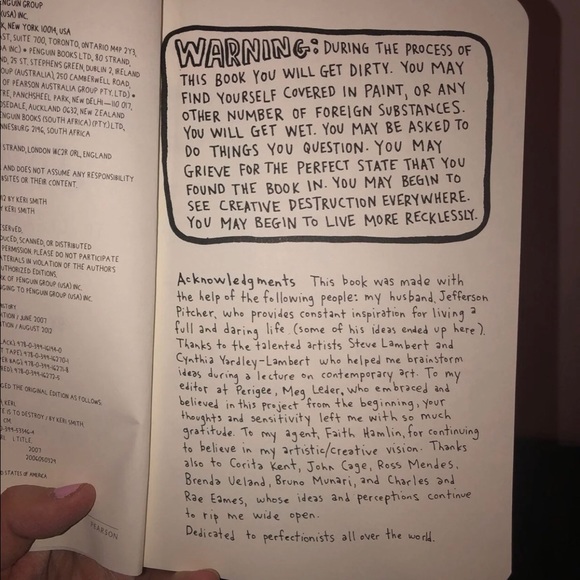 NGUIN GROUP
(USA) INC.
K, NEW YORK 10014, USA
AST, SUITE 700, TORONTO, ONTARIO M4P 2Y3,
A INC) • PENGUIN BOOKS LTD., 80 STRAND,
D, 25 ST. STEPHENS GREEN, DUBLIN 2, IRELAND
OUP (AUSTRALIA), 250 CAMBERWELL ROAD,
OF PEARSON AUSTRALIA GROUP PTY. LTD.) •
TRE, PANCHSHEEL PARK, NEW DELHI—110 017,
OSEDALE, AUCKLAND 0632, NEW ZEALAND
NGUIN BOOKS (SOUTH AFRICA) (PTY.) LTD.,
NNESBURG 2196, SOUTH AFRICA
STRAND, LONDON WC2R 0RL, ENGLAND
AND DOES NOT ASSUME ANY RESPONSIBILITY
BSITES OR THEIR CONTENT.
BY KERI SMITH
KERI SMITH
SERVED.
DUCED, SCANNED, OR DISTRIBUTED
PERMISSION. PLEASE DO NOT PARTICIPATE
ATERIALS IN VIOLATION OF THE AUTHOR'S
UTHORIZED EDITIONS.
K OF PENGUIN GROUP (USA) INC.
GING TO PENGUIN GROUP (USA) INC.
STORY
ITION / JUNE 2007
ITION / AUGUST 2012
GED THE ORIGINAL EDITION AS FOLLOWS:
KERI.
IS TO DESTROY / BY KERI SMITH
CM.
I. TITLE.
2007
D STATES OF AMERICA
PEARSON
WARNING: DURING THE PROCESS OF
THIS BOOK YOU WILL GET DIRTY. YOU MAY
FIND YOURSELF COVERED IN PAINT, OR ANY
OTHER NUMBER OF FOREIGN SUBSTANCES.
YOU WILL GET WET. YOU MAY BE ASKED TO
DO THINGS YOU QUESTION. YOU MAY
GRIEVE FOR THE PERFECT STATE THAT YOU
FOUND THE BOOK IN. YOU MAY BEGIN TO
SEE CREATIVE DESTRUCTION EVERYWHERE.
YOU MAY BEGIN TO LIVE MORE RECKLESSLY.
Acknowledgments This book was made with
the help of the following people: my husband, Jefferson
Pitcher, who provides constant inspiration for living a
full and daring life (some of his ideas ended up here).
Thanks to the talented artists Steve Lambert and
Cynthia Yardley-Lambert who helped me brainstorm
ideas during a lecture on contemporary art. To my
editor at Perigee, Meg Leder, who embraced and
believed in this project from the beginning, your
thoughts and sensitivity left me with so much
gratitude. To my agent, Faith Hamlin, for continuing
to believe in my artistic/creative vision. Thanks
also to Corita Kent, John Cage, Ross Mendes,
Brenda Ueland, Bruno Munari, and Charles and
Rae Eames, whose ideas and perceptions continue
to rip me wide open.
Dedicated to perfectionists all over the world.